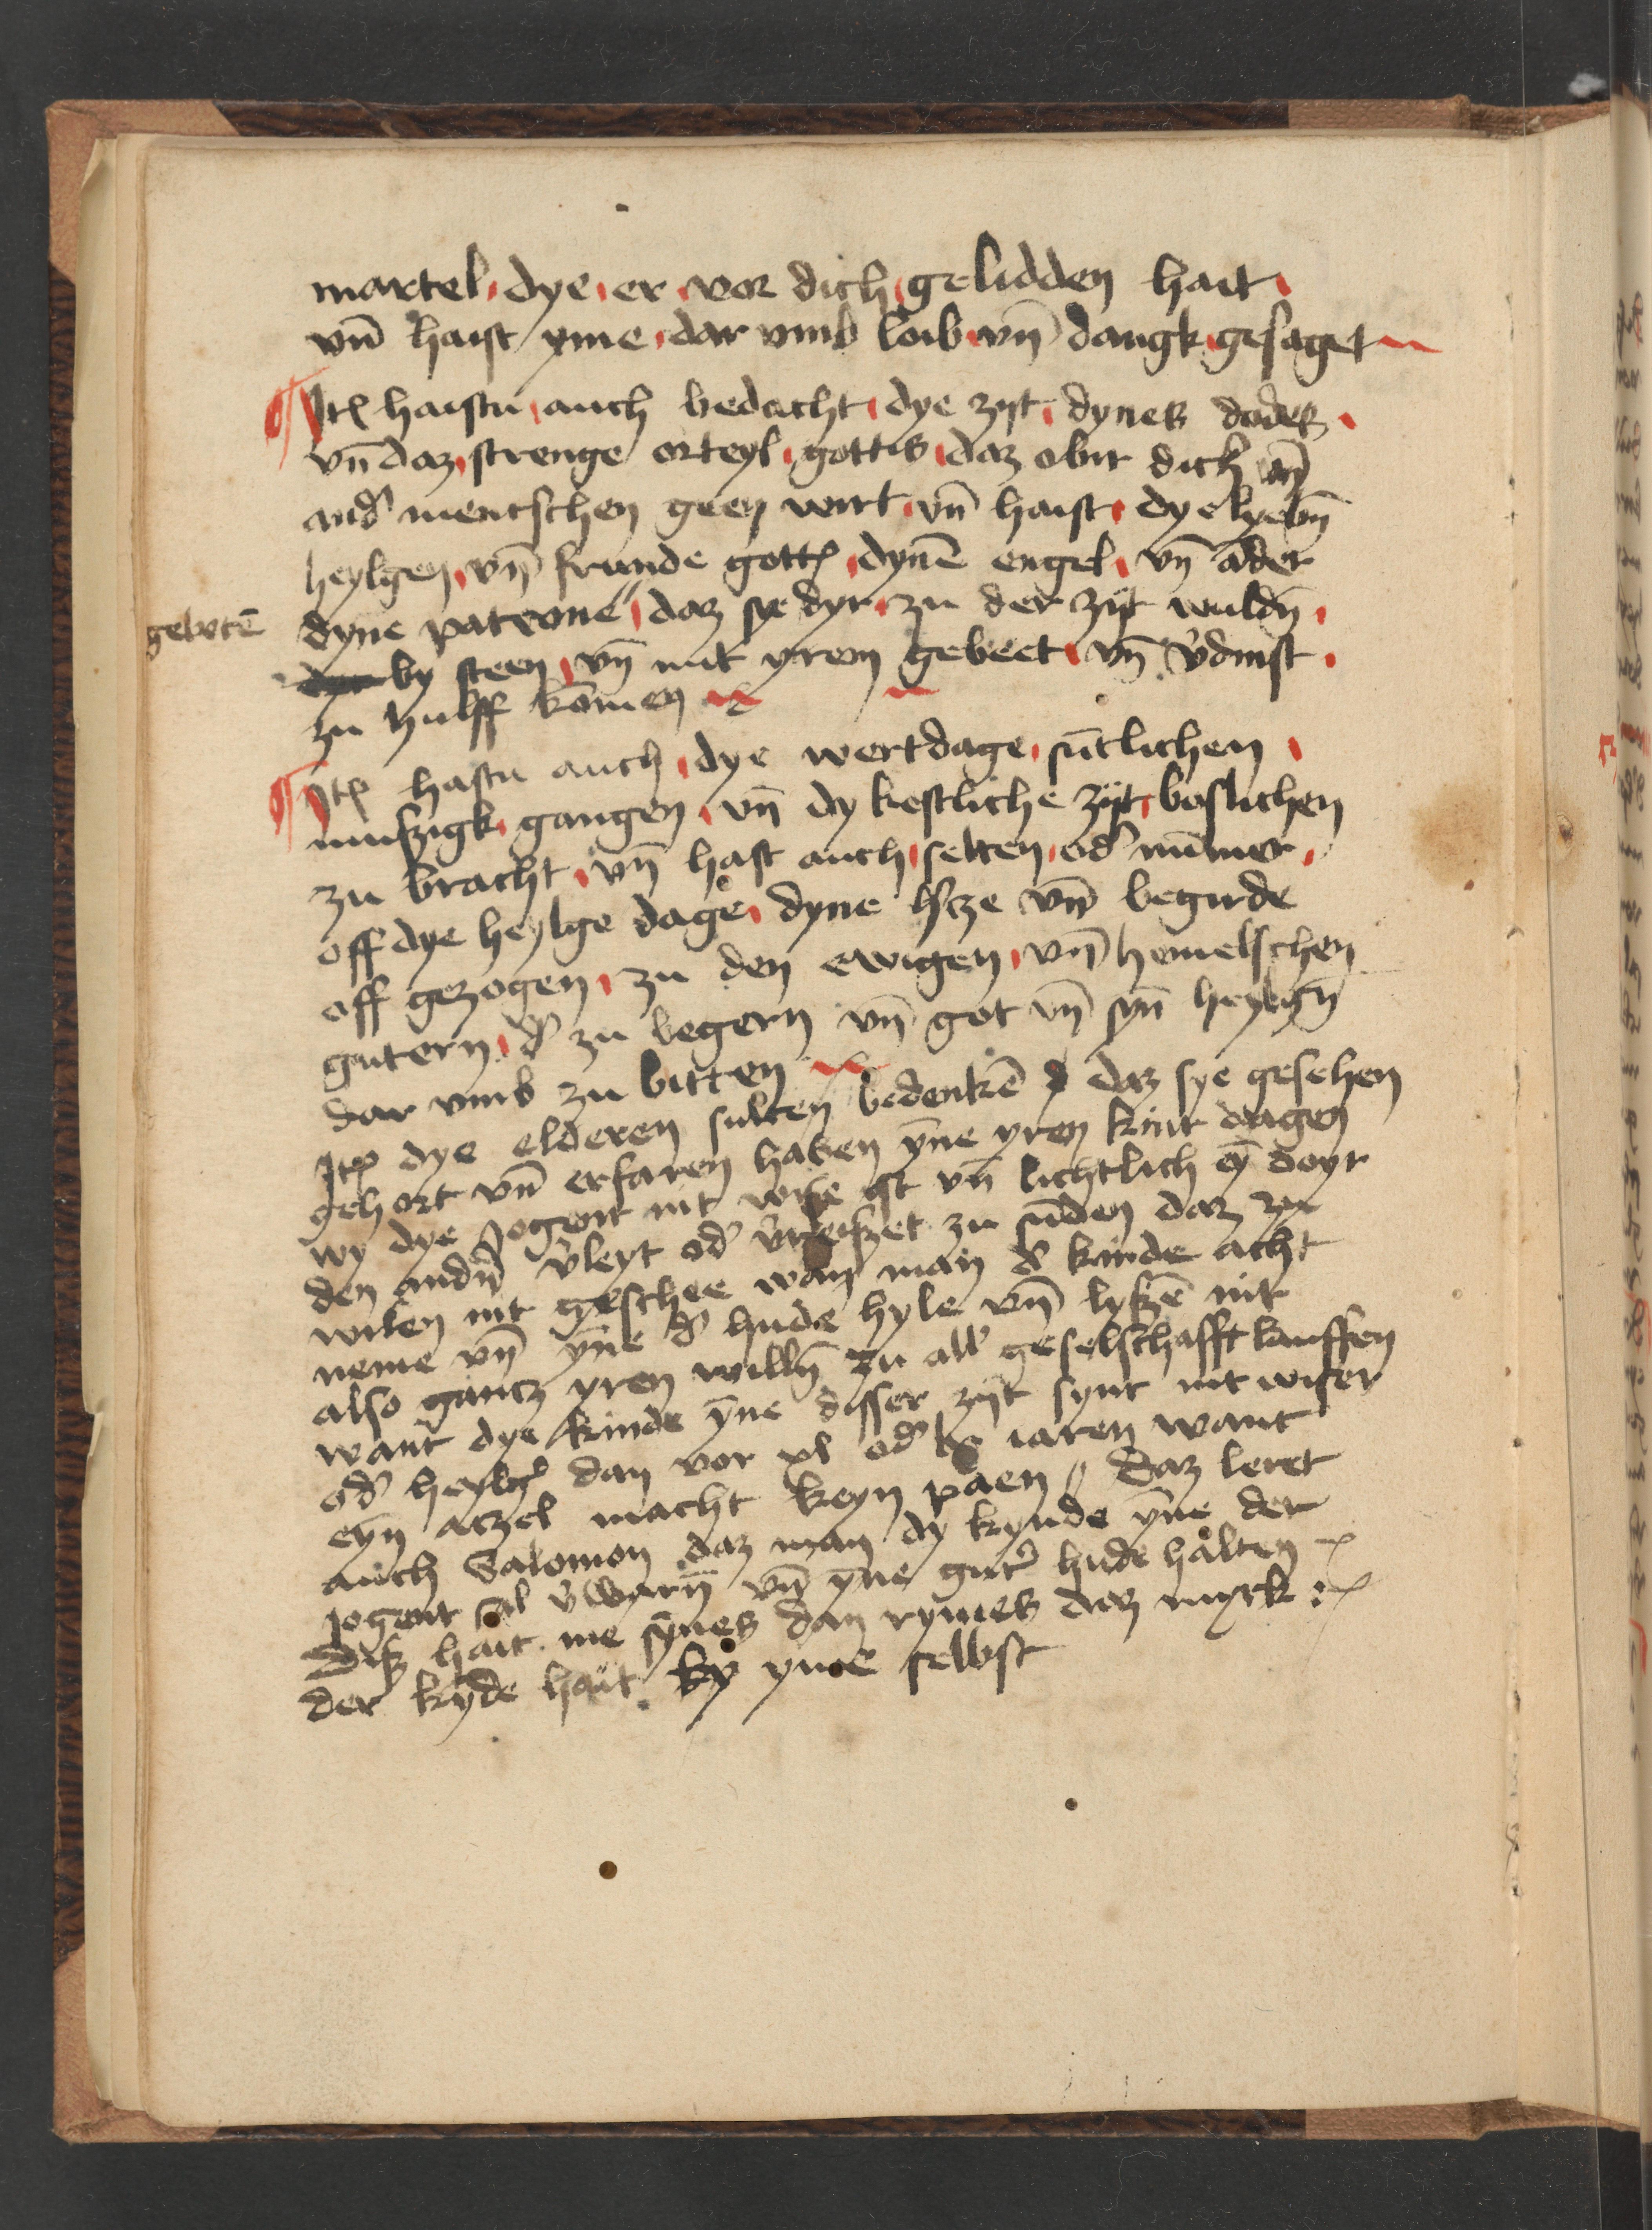 martel dye er vor dich gelidden hait
vn̄ haist yme dar vmb loib vn̄ dangk gesaget
Itꝭ haistu auch bedacht dye zyt dynes dodes
vn̄ daz strenge orteyl gottis daz obir dich vn̄
and᷑ mentschen geen wirt vn̄ haist dye lyebn̄
heylgen vn̄ frunde gottꝭ dynē engel vn̄ ader
gebetē
dyne patrone daz sye dyr zu der zijt wuldn̄
by steen vn̄ mit yrem gebeet vn̄ v᷑dinst
zu hulff komen
Itꝭ hastu auch dye wertdage sūtlichen
mußzigk gangen vn̄ dy kostliche zijt boslichen
zu bracht vn̄ hast auch selten od᷑ nūmer
off dye heylge dage dyne h᷑tze vn̄ begirde
off gezogen zu den ewigen vn̄ hemelschen
gutern d᷑ zu begern vn̄ got vn̄ syn̄ heylgn̄
dar vmb zu bitten
Itꝭ dye elderen sulten bedenkē daz sye gesehen
gehort vn̄ erfaren haben yn̄e yren kint dagen
wy dye Jogent nit wiße ist vn̄ lichtlich eȳ doyr
den andn̄ v᷑leyt od᷑ v᷑reißet zu sūden daz zu
wilen nit geschee wan man d᷑ kinde acht
neme vn̄ yn̄e d᷑ hude hyle vn̄ lyßē nit
also gantz yren willn̄ zu all᷑ geselschafft lauffen
want dye kinde yn̄e disser zijt synt nit wiser
od᷑ heylg᷑ dan vor xl od᷑ iaren want
eyn atzel macht keyn paen daz leret
auch Salomon daz man dy kynde yn̄e der
Jogent sal v᷑warn̄ vn̄ yn̄e gut᷑ hude halten
Diß hait me synes dan rymes daz mirk
der kyde hait by yme selbst